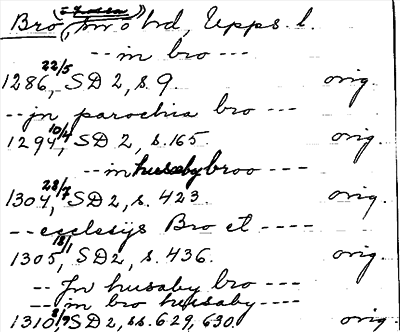 Bro, sn o hd, Upps. l.
-- in bro ---
1286 22/5, SD 2, s. 9. orig.
-- jn parochia bro ---
1294 10/4, SD 2, s. 165. orig.
-- in husaby broo ---
1304 23/7, SD 2, s. 423. orig.
-- ecclesijs Bro et ----
1305 18/1, SD 2, s. 436. orig.
-- Jn husaby bro ---
-- in bro husaby ----
1310 2/9 SD 2, ss. 629, 630. orig.